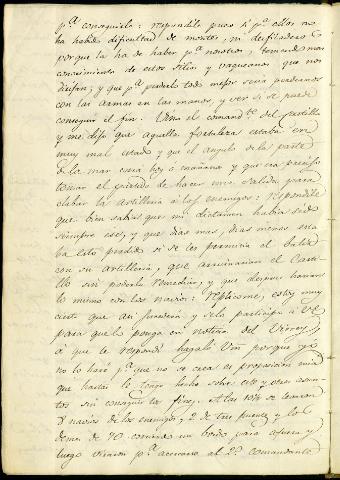 pª conseguirlo: respondile pues si pª ellos no
ha habido dificultad de montes, ni desfiladeros
porque la ha de haber pª nosotros, teniendo mas
conocimiento de estos sitios y vaqueanos que nos
dirijan; y que pª perderlo todo mejor sera perdernos
con las armas en las manos, y ver si se puede
conseguir el fin. Vino el comandte del Castillo
y me dijo que aquella fortaleza estaba en
muy mal estado y que el angulo de la parte
de la mar caeria hoy ó mañana y que era preciso
tomar el partido de hacer una salida para
clabar la Artilleria á los enemigos: respondile
que bien sabia que mi dictamen habia sido
siempre ese, y que dias mas, dias menos era
ba esto perdido si se les permitia el batir
con su Artilleria, que arruinarian el Casti-
llo sin poderlo remediar, y que despues harian
lo mismo con los navios: replicome, estoy muy
cierto que asi sucederá y selo participo á VE
para que lo ponga en noticia del Virrey,
á que le respondi hagalo Vm porque yo
no lo haré pª que no se crea es proposicion mia
que hartas le tengo hecho sobre este y otros asun-
tos sin conseguir los fines. A las 10½ se levaron
8 navios de los enemigos, 2 de tres puentes y los
demas de 70 corriendo un bordo para afuera y
luego viraron pª acercarse al 2º comandante